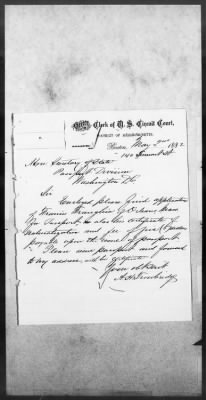 Clerk of U. S. Circuit Court,
DISTRICT OF MASSACHUSETTS.
Boston, May 2nd 1882
140 Summit St
Hon. Secretary of State
Passport Division
Washington D.C.
Sir
Enclosed please find application
of Francis
for Passport, as also his certificate of
Naturalization and fee of
upon the issue of passport.
Please issue passport and forward
to my address, and
Your obt Servt
A. H. Trowbridge